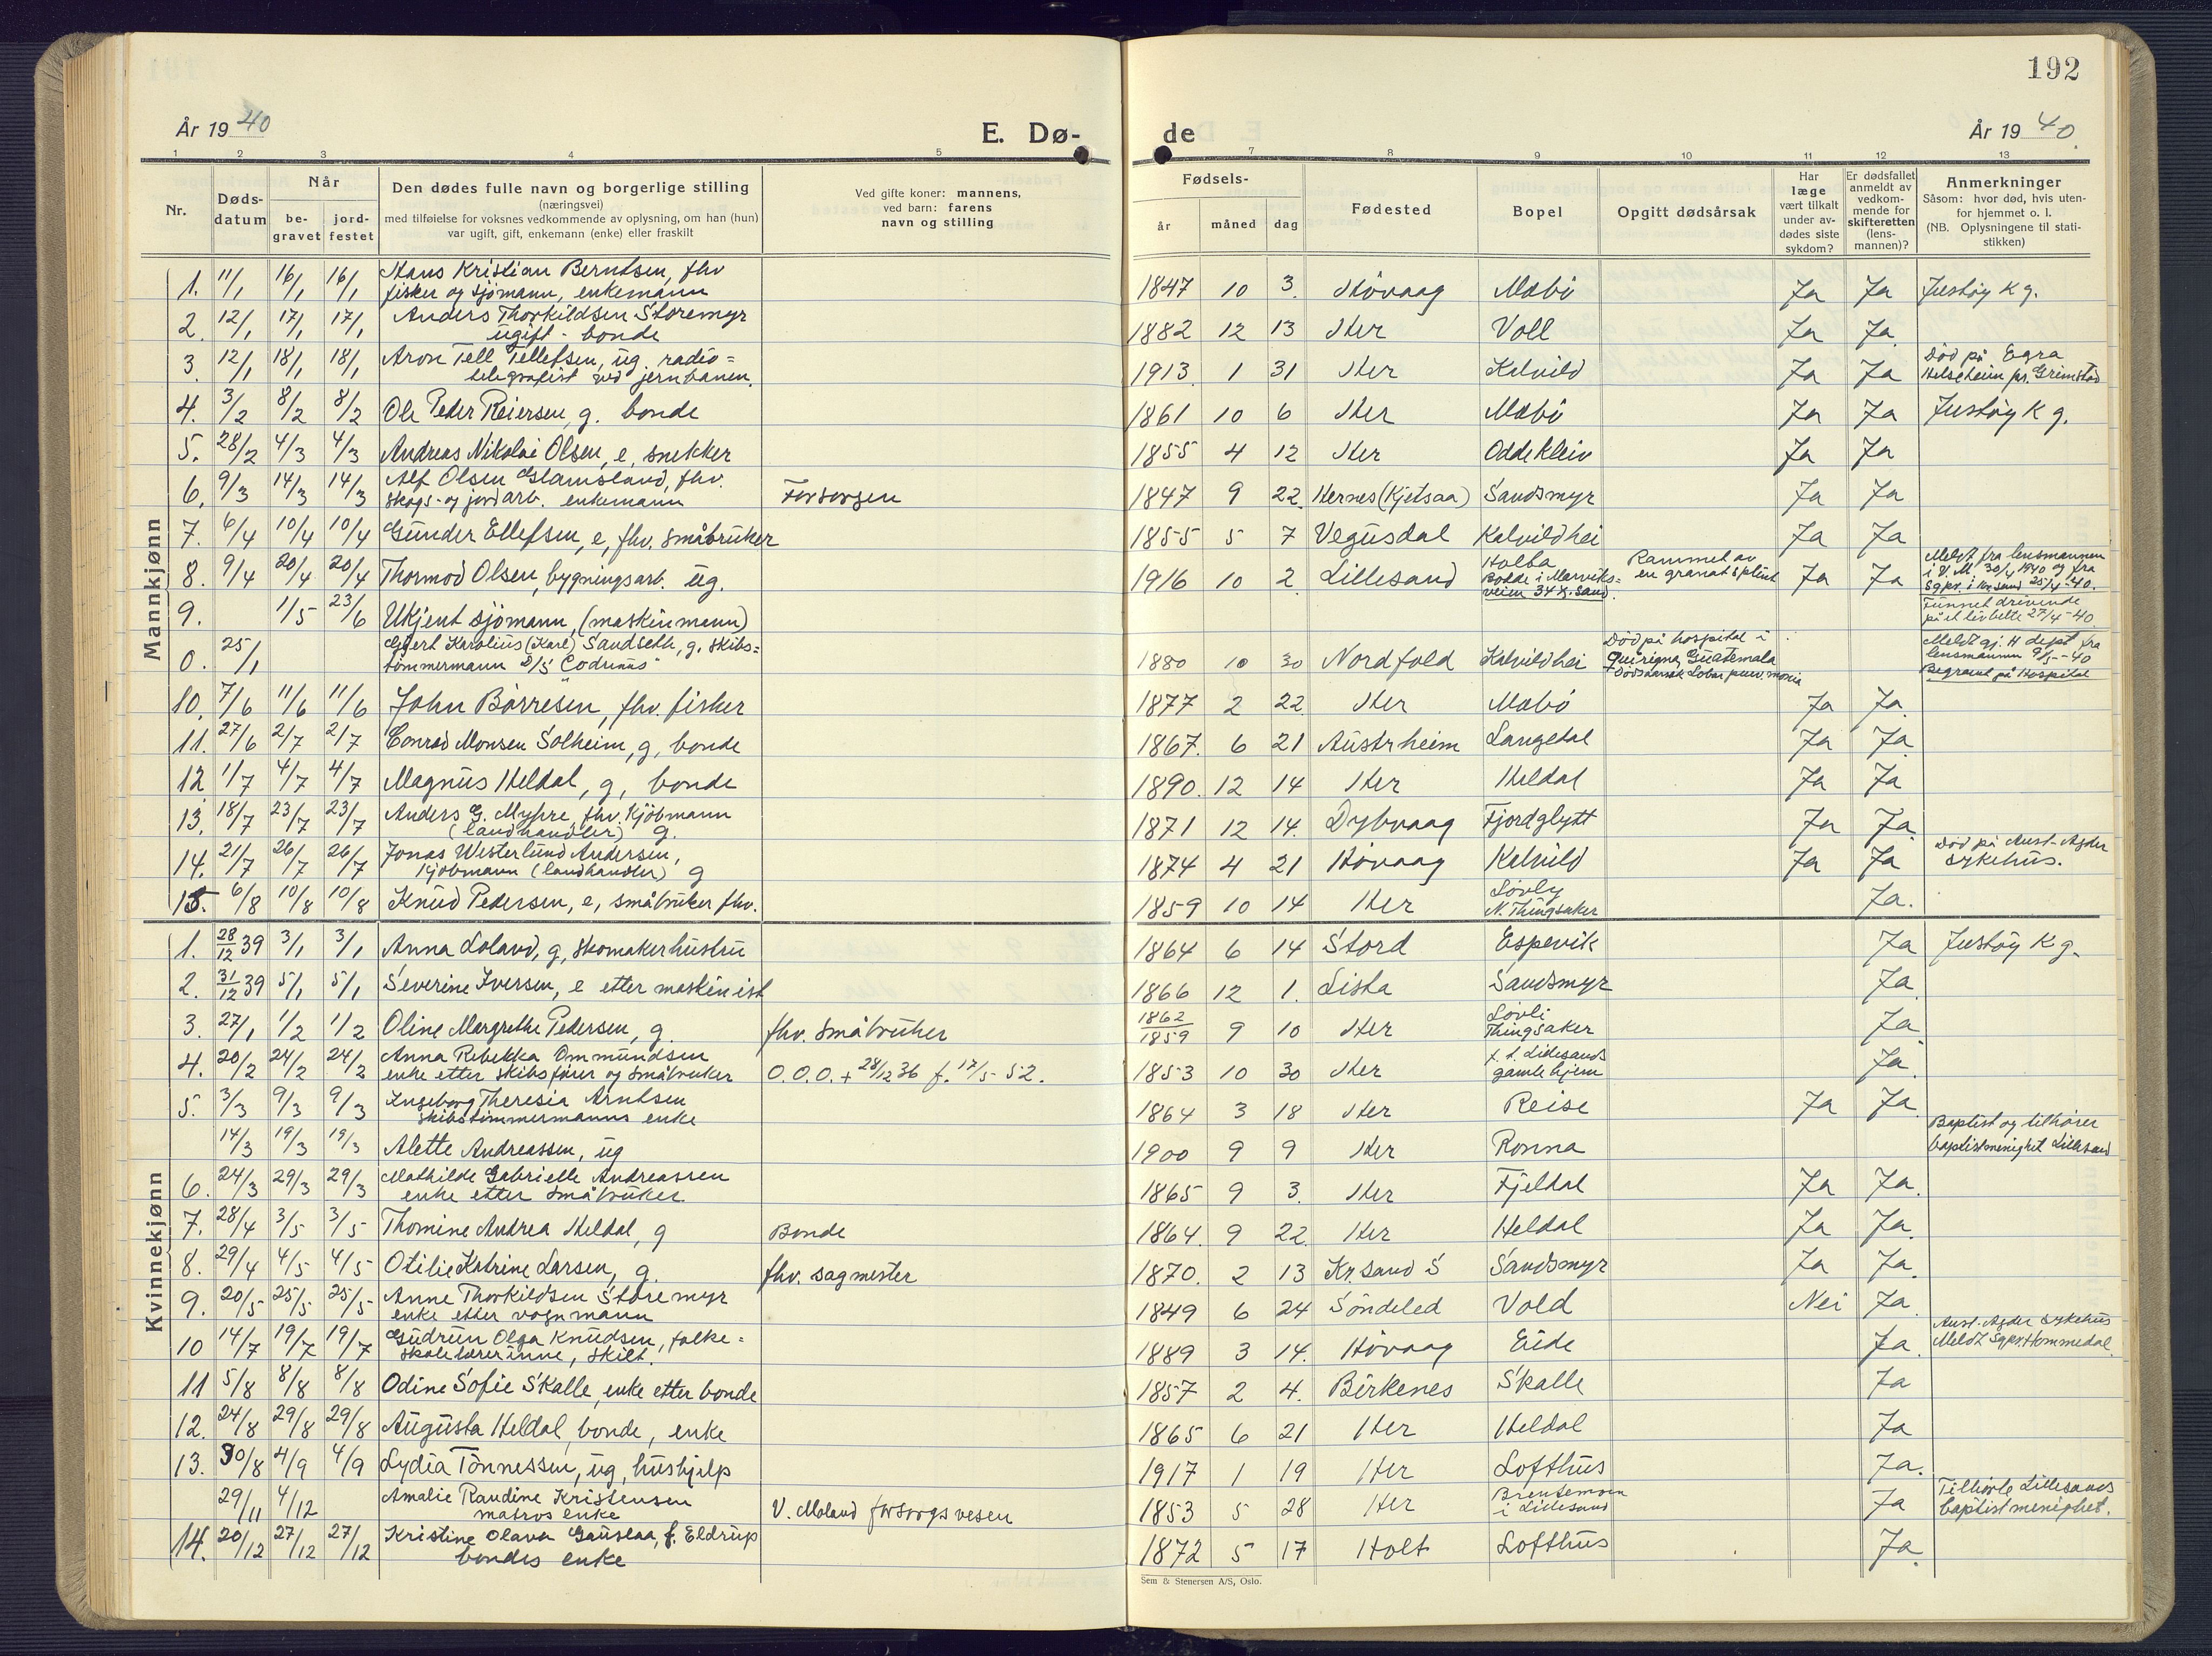 192
År 1940
E. Dø-
de
År 1940.
1 2 3 4 5 7 8 9 10 11 12 13
Nr.
Døds-
datum
Når
be-
gravet
jord-
festet
Den dødes fulle navn og borgerlige stilling
(næringsvei)
med tilføielse for voksnes vedkommende av oplysning, om han (hun)
var ugift, gift, enkemann (enke) eller fraskilt
Ved gifte koner: mannens,
ved barn: farens
navn og stilling
Fødsels-
år måned dag
Fødested
Bopel
Opgitt dødsårsak
Har
læge
vært tilkalt
under av-
dødes siste
sykdom?
Er dødsfallet
anmeldt av
vedkom-
mende for
skifteretten
(lens-
mannen)?
Anmerkninger
Såsom: hvor død, hvis uten-
for hjemmet o. l.
(NB. Oplysningene til stati-
stikken)
Mannkjønn
1. 11/1 16/1 16/1 Hans Kristian Berntsen, fhv
fisker og sjömann, enkemann 1847 10 3. Hövaag Mæbö Ja Ja Justöy K g.
2. 12/1 17/1 17/1 Anders Thorkildsen Storemyr
ugift - bonde 1882 12 13 Her Voll Ja Ja
3. 12/1 18/1 18/1 Aron Tell Tellefsen, ug. radio=
telegrafist ved jernbanen. 1913 1 31 Her Kalvild Ja Ja Död på Egra
Helseheim pr. Grimstad
4. 3/2 8/2 8/2 Ole Peder Reiersen, g. bonde 1861 10 6 Her Mæbö Ja Ja Justöy K g.
5. 28/2 4/3 4/3 Andreas Nikolai Olsen, e, snekker 1855 4 12 Her Oddekleiv Ja Ja
6. 9/3 14/3 14/3 Alf Olsen Glamsland, fhv.
skogs- og jordarb. enkemann Forsorgen 1847 9 22. Hernes (Kjetsaa) Sandsmyr Ja Ja
7. 6/4 10/4 10/4 Gunder Ellefsen, e, fhv. småbruker 1855 5 7 Vegusdal Kalvildhei Ja Ja
8. 9/4 20/4 20/4 Thormod Olsen, bygningsarb. ug. 1916 10 2. Lillesand Holba
Bodde i Marviks=
veien 34 Kr. sand. Rammet av
en granatsplint Ja Ja Meldt fra lensmannen
i V. M 30/4 1940 og fra
Sgpr. i Kr.sand 25/4-40.
9. 1/5 23/6 Ukjent sjömann, (maskinmann) Funnet drivende
på et livbelte 27/4-40.
0. 25/1 Karolius (Karl) Sandseth, g. skibs=
tömmermann D/S "Codrinus" 1880 10 30 Nordfold Kalvildhei Död på hospital i
Quirigna, Guatemala
Dödsårsak Lobar pneumonia Meldt gj. H dept fra
lensmannen 9/5-40
Begravet på Hospital
10. 7/6 11/6 11/6 John Børresen, fhv. fisker 1877 2 22. Her Mæbö Ja Ja.
11. 27/6 2/7 2/7 Conrad Monsen Solheim, g, bonde 1867. 6 21 Austrheim Langedal Ja Ja
12 1/7 4/7 4/7 Magnus Heldal, g, bonde 1890. 12 14 Her Heldal Ja Ja
13. 18/7 23/7 23/7 Anders G. Myhre, fhv. Kjöbmann
(landhandler) g. 1871 12 14. Dybvaag Fjordglytt Ja Ja
14. 21/7 26/7 26/7 Jonas Westerlund Andersen,
Kjöbmann (landhandler) g 1874 4 21 Hövaag Kalvild Ja Ja Död på Aust-Agder
sykehus.
15. 6/8 10/8 10/8 Knud Pedersen, e, småbruker fhv. 1859 10 14 Her Lövly
N. Thingsaker Ja.
Kvinnekjønn
1. 28/12 39 3/1 3/1 Anna Loland, g, skomakerhustru 1864 6 14 Stord Espevik Ja Justöy K. g.
2. 31/12 39 5/1 5/1 Severine Iversen, e etter maskinist 1866 12 1. Lista Sandsmyr Ja
3. 27/1 1/2 1/2 Oline Margrethe Pedersen, g. fhv. småbruker 1862
1859 9 10 Her Lövli
Thingsaker Ja
4. 20/2 24/2 24/2 Anna Rebekka Ommundsen
enke etter skibsförer og småbruker O. O. O. + 28/12 36 f. 17/5-52. 1853 10 30 Her f. t. Lillesands
gamlehjem Ja.
5. 3/3 9/3 9/3 Ingeborg Theresia Arntsen
skibstömmermanns enke 1864 3 18 Her Reise Ja Ja
14/3 19/3 19/3 Alette Andreassen, ug 1900 9 9 Her Ronna Baptist og tilhörer
baptistmenighet Lillesand
6. 24/3 29/3 29/3 Mathilde Gabrielle Andreassen
enke etter småbruker. 1865 9 3. Her Fjeldal Ja Ja.
7. 28/4 3/5 3/5 Thomine Andrea Heldal, g Bonde 1864. 9 22. Her Heldal Ja Ja.
8. 29/4 4/5 4/5 Otilie Katrine Larsen, g. fhv. sagmester 1870. 2 13 Kr. sand S Sandsmyr Ja Ja.
9. 20/5 25/5 25/5 Anne Thorkildsen Storemyr
enke etter vognmann 1849 6 24 Söndeled Vold Nei Ja
10 14/7 19/7 19/7 Gudrun Olga Knudsen, folke=
skolelærerinne, skilt. 1889 3 14. Hövaag Eide Ja. Aust-Agder sykehus
Meldt Sgpr. Hommedal.
11 5/8 8/8 8/8 Odine Sofie Skalle, enke etter bonde 1857 2 4. Birkenes Skalle Ja
12. 24/8 29/8 29/8 Augusta Heldal, bonde, enke 1865 6 21 Her Heldal Ja
13. 30/8 4/9 4/9 Lydia Tönnessen, ug, hushjelp 1917 1 19 Her Lofthus Ja.
29/11 4/12 Amalie Raudine Kristensen
matros enke V. Moland forsorgsvesen 1853 5 28 Her Brentemoen
i Lillesand Ja Tilhörte Lillesands
baptistmenighet.
14. 20/12 27/12 27/12 Kristine Olava Gauslaa, f. Eldrup
bondes enke 1872 5 17 Holt Lofthus Ja.
Sem & Stenersen A/S, Oslo.